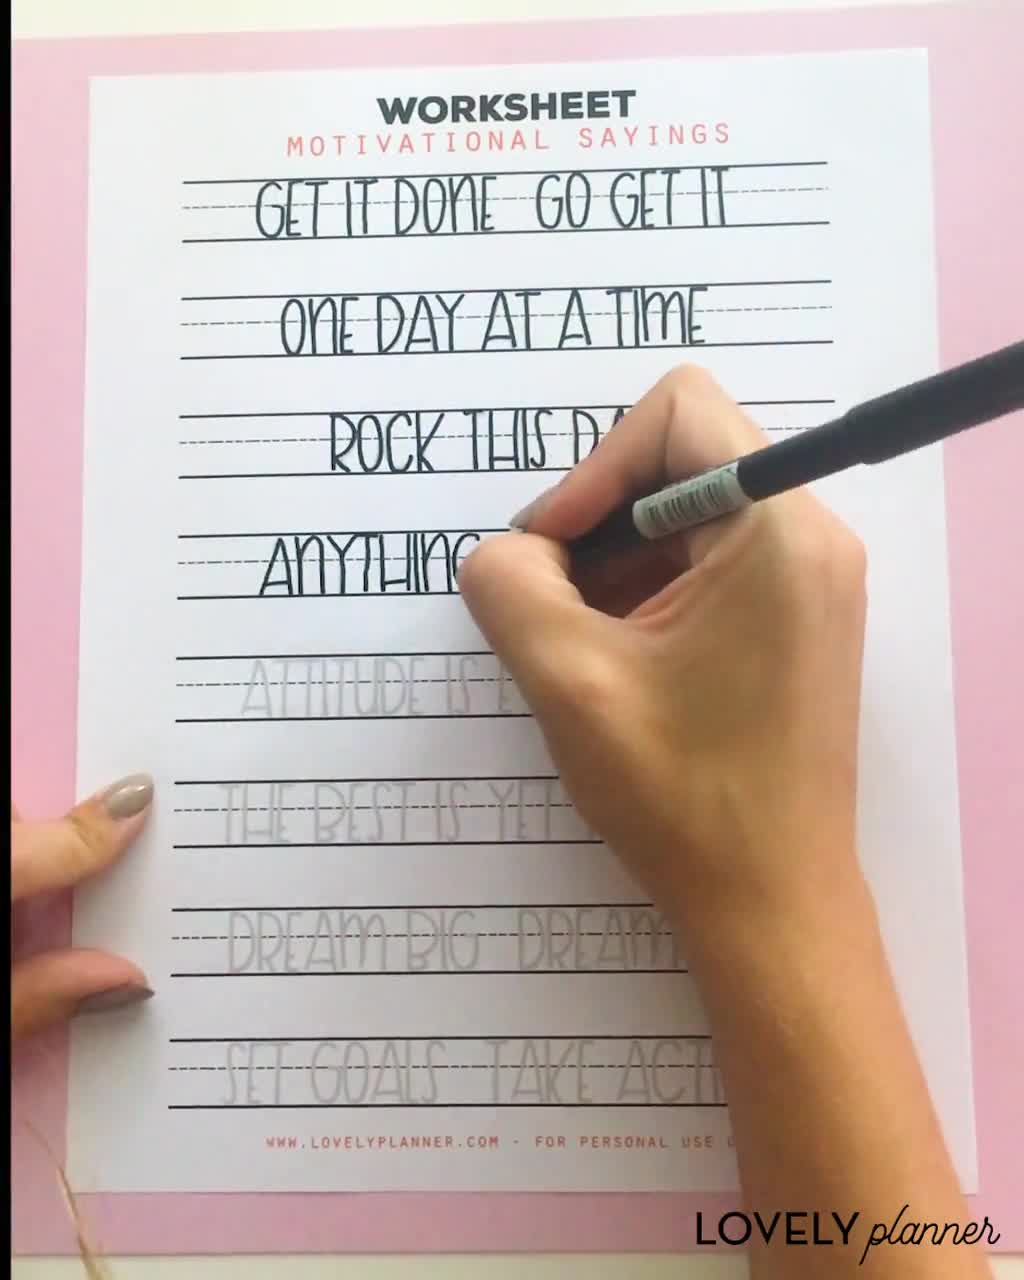 WORKSHEET
MOTIVATIONAL SAYINGS
GET IT DONE GO GET IT
ONE DAY AT A TIME
ROCK THIS
ANYTHING
ATTITUDE IS
THE BEST IS YET
DREAM BIG DREAM
SET GOALS TAKE
WWW.LOVELYPLANNER.COM - FOR PERSONAL USE
LOVELY planner